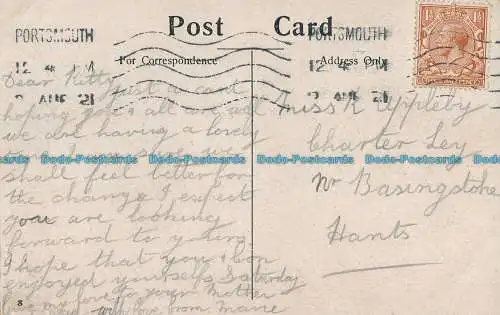 Post Card
PORTSMOUTH
PORTSMOUTH
For Correspondence
Address Only
12 4 PM
12 4 PM
AUG 21
AUG 21
Dear Kitty
just a card
hoping you & all are well
we are having a lovely
time
shall feel better for
the change I expect
you are looking
forward to yours
I hope that you &
enjoyed yourselfs Saturday
give my love to your Mother
with love from Marie
Miss K Appleby
Charter Ley
Nr Basingstoke
Hants
8
Dodo-Postcards Dodo-Postcards Dodo-Postcards Dodo-Postcards Dodo-Postcards